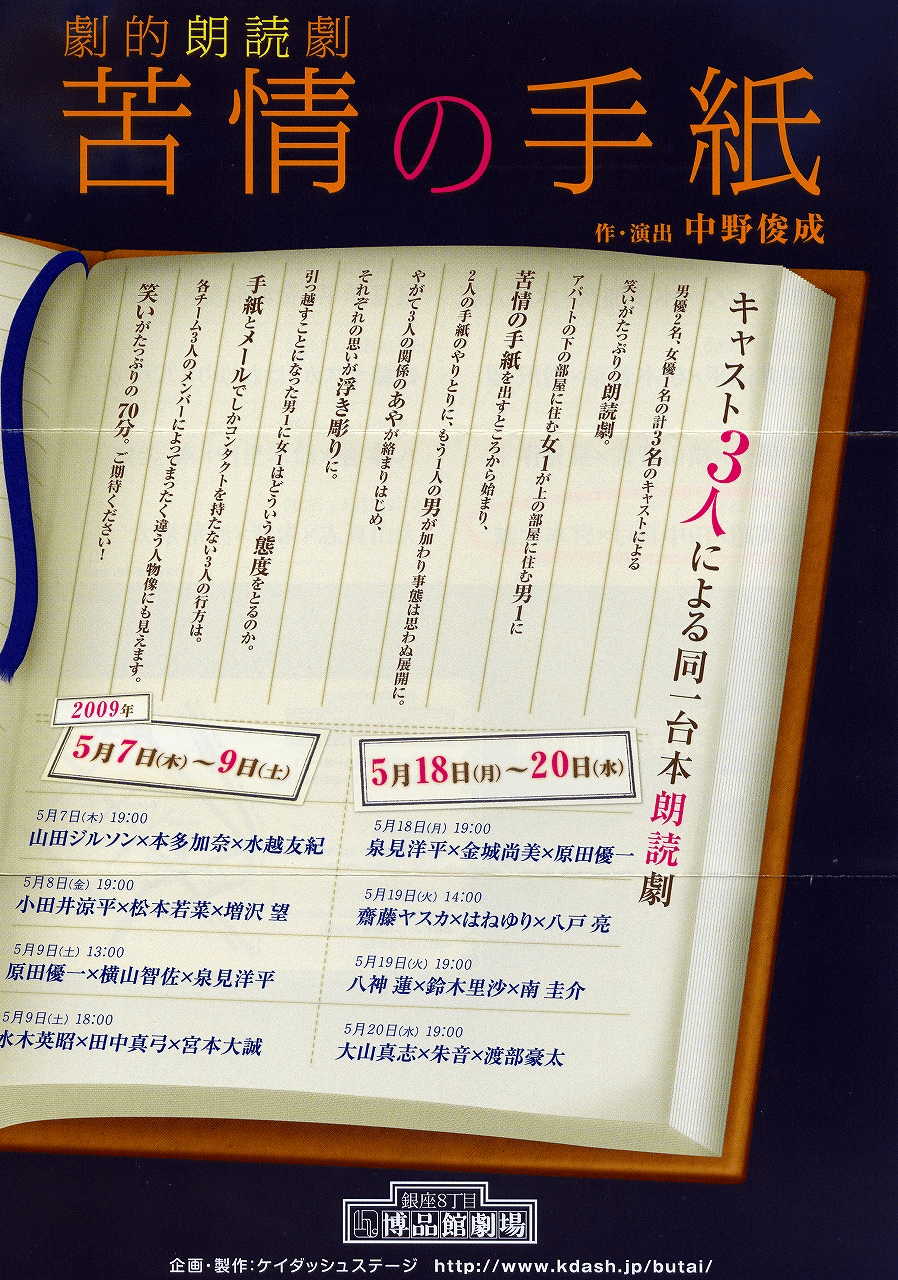 劇的朗読劇
苦情の手紙
作・演出 中野俊成
キャスト3人による同一台本朗読劇
男優2名、女優1名の計3名のキャストによる
笑いがたっぷりの朗読劇。
アパートの下の部屋に住む女1が上の部屋に住む男1に
苦情の手紙を出すところから始まり、
2人の手紙のやりとりに、もう1人の男が加わり事態は思わぬ展開に。
やがて3人の関係のあやが絡まりはじめ、
それぞれの思いが浮き彫りに。
引っ越すことになった男1に女1はどういう態度をとるのか。
手紙とメールでしかコンタクトを持たない3人の行方は。
各チーム3人のメンバーによってまったく違う人物像にも見えます。
笑いがたっぷりの70分。ご期待ください!
2009年
5月7日(木)~9日(土)
5月7日(木) 19:00
山田ジルソン×本多加奈×水越友紀
5月8日(金) 19:00
小田井涼平×松本若菜×増沢 望
5月9日(土) 13:00
原田優一×横山智佐×泉見洋平
5月9日(土) 18:00
水木英昭×田中真弓×宮本大誠
5月18日(月)~20日(水)
5月18日(月) 19:00
泉見洋平×金城尚美×原田優一
5月19日(火) 14:00
齋藤ヤスカ×はねゆり×八戸 亮
5月19日(火) 19:00
八神 蓮×鈴木里沙×南 圭介
5月20日(水) 19:00
大山真志×朱音×渡部豪太
銀座8丁目
博品館劇場
企画・製作:ケイダッシュステージ http://www.kdash.jp/butai/